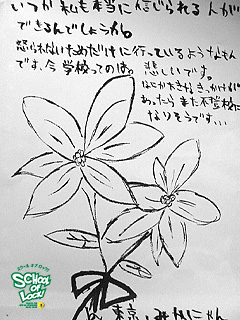 いつか私も本当に信じられる人が
できるんでしょうか。
怒られないためだけに行っているようなもん
です、今学校ってのは。悲しいです。
なにか大きなきっかけが
あったらまた不登校に
なりそうです…
SCHOOL
OF
LOCK!
東京・みかにゃん